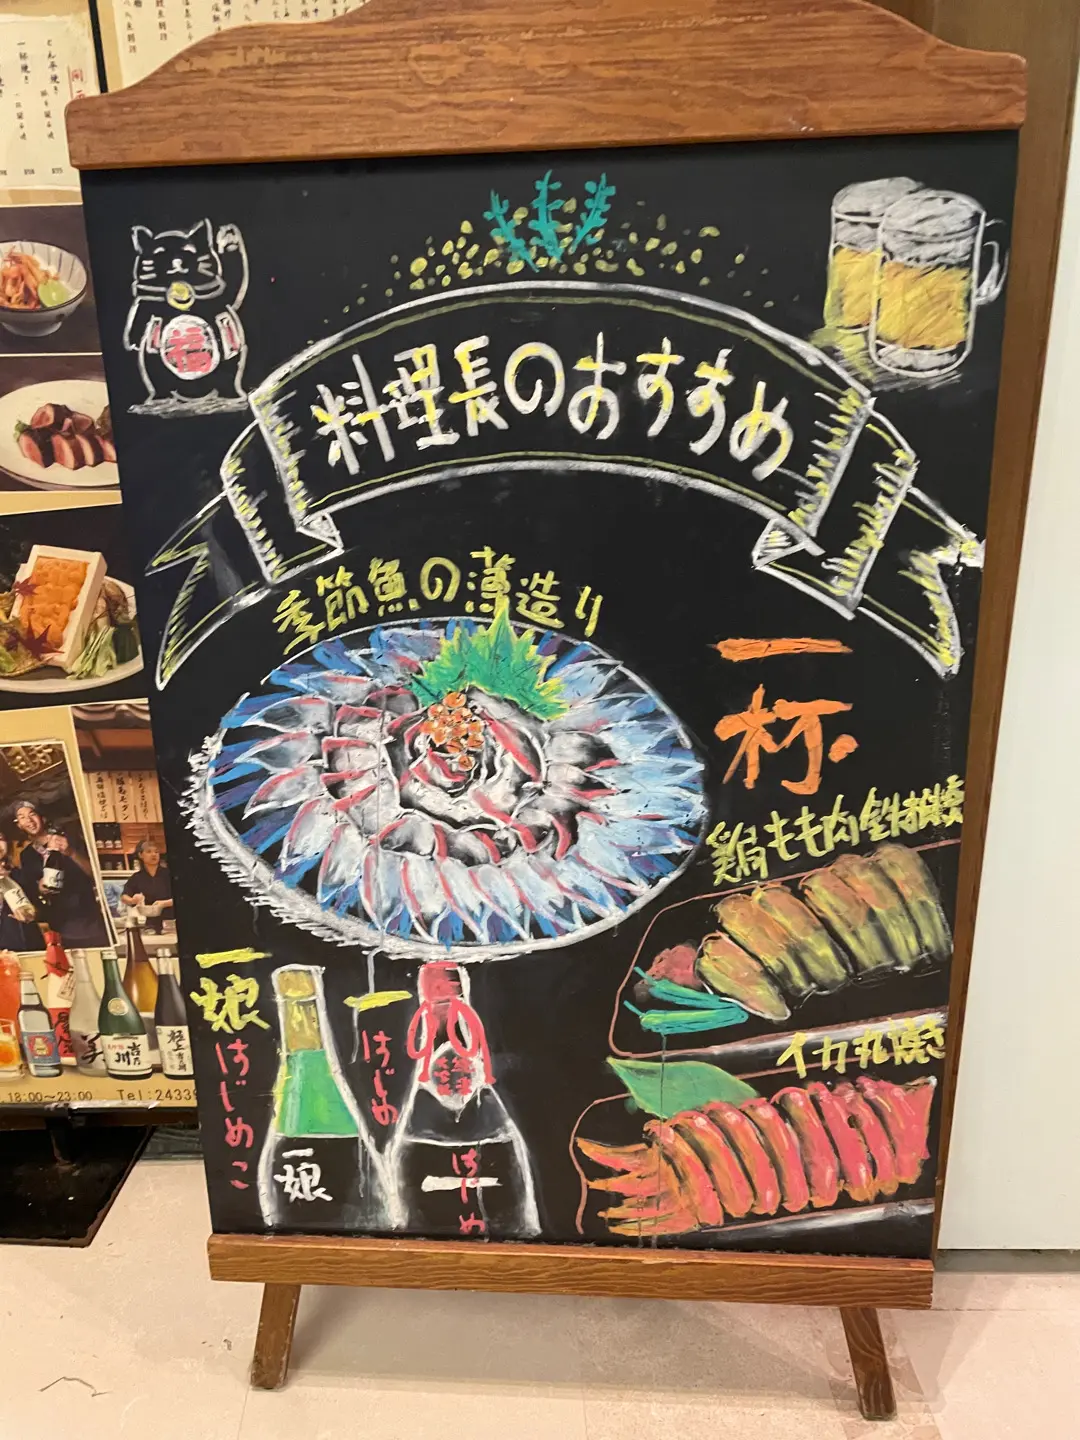 福
料理長のおすすめ
季節魚の薄造り
一
杯
鶏もも肉鉄板焼
イカ丸焼き
一娘
はじめこ
一
はじめ
一娘
はじめ
極上
18:00～23:00 Tel:2433